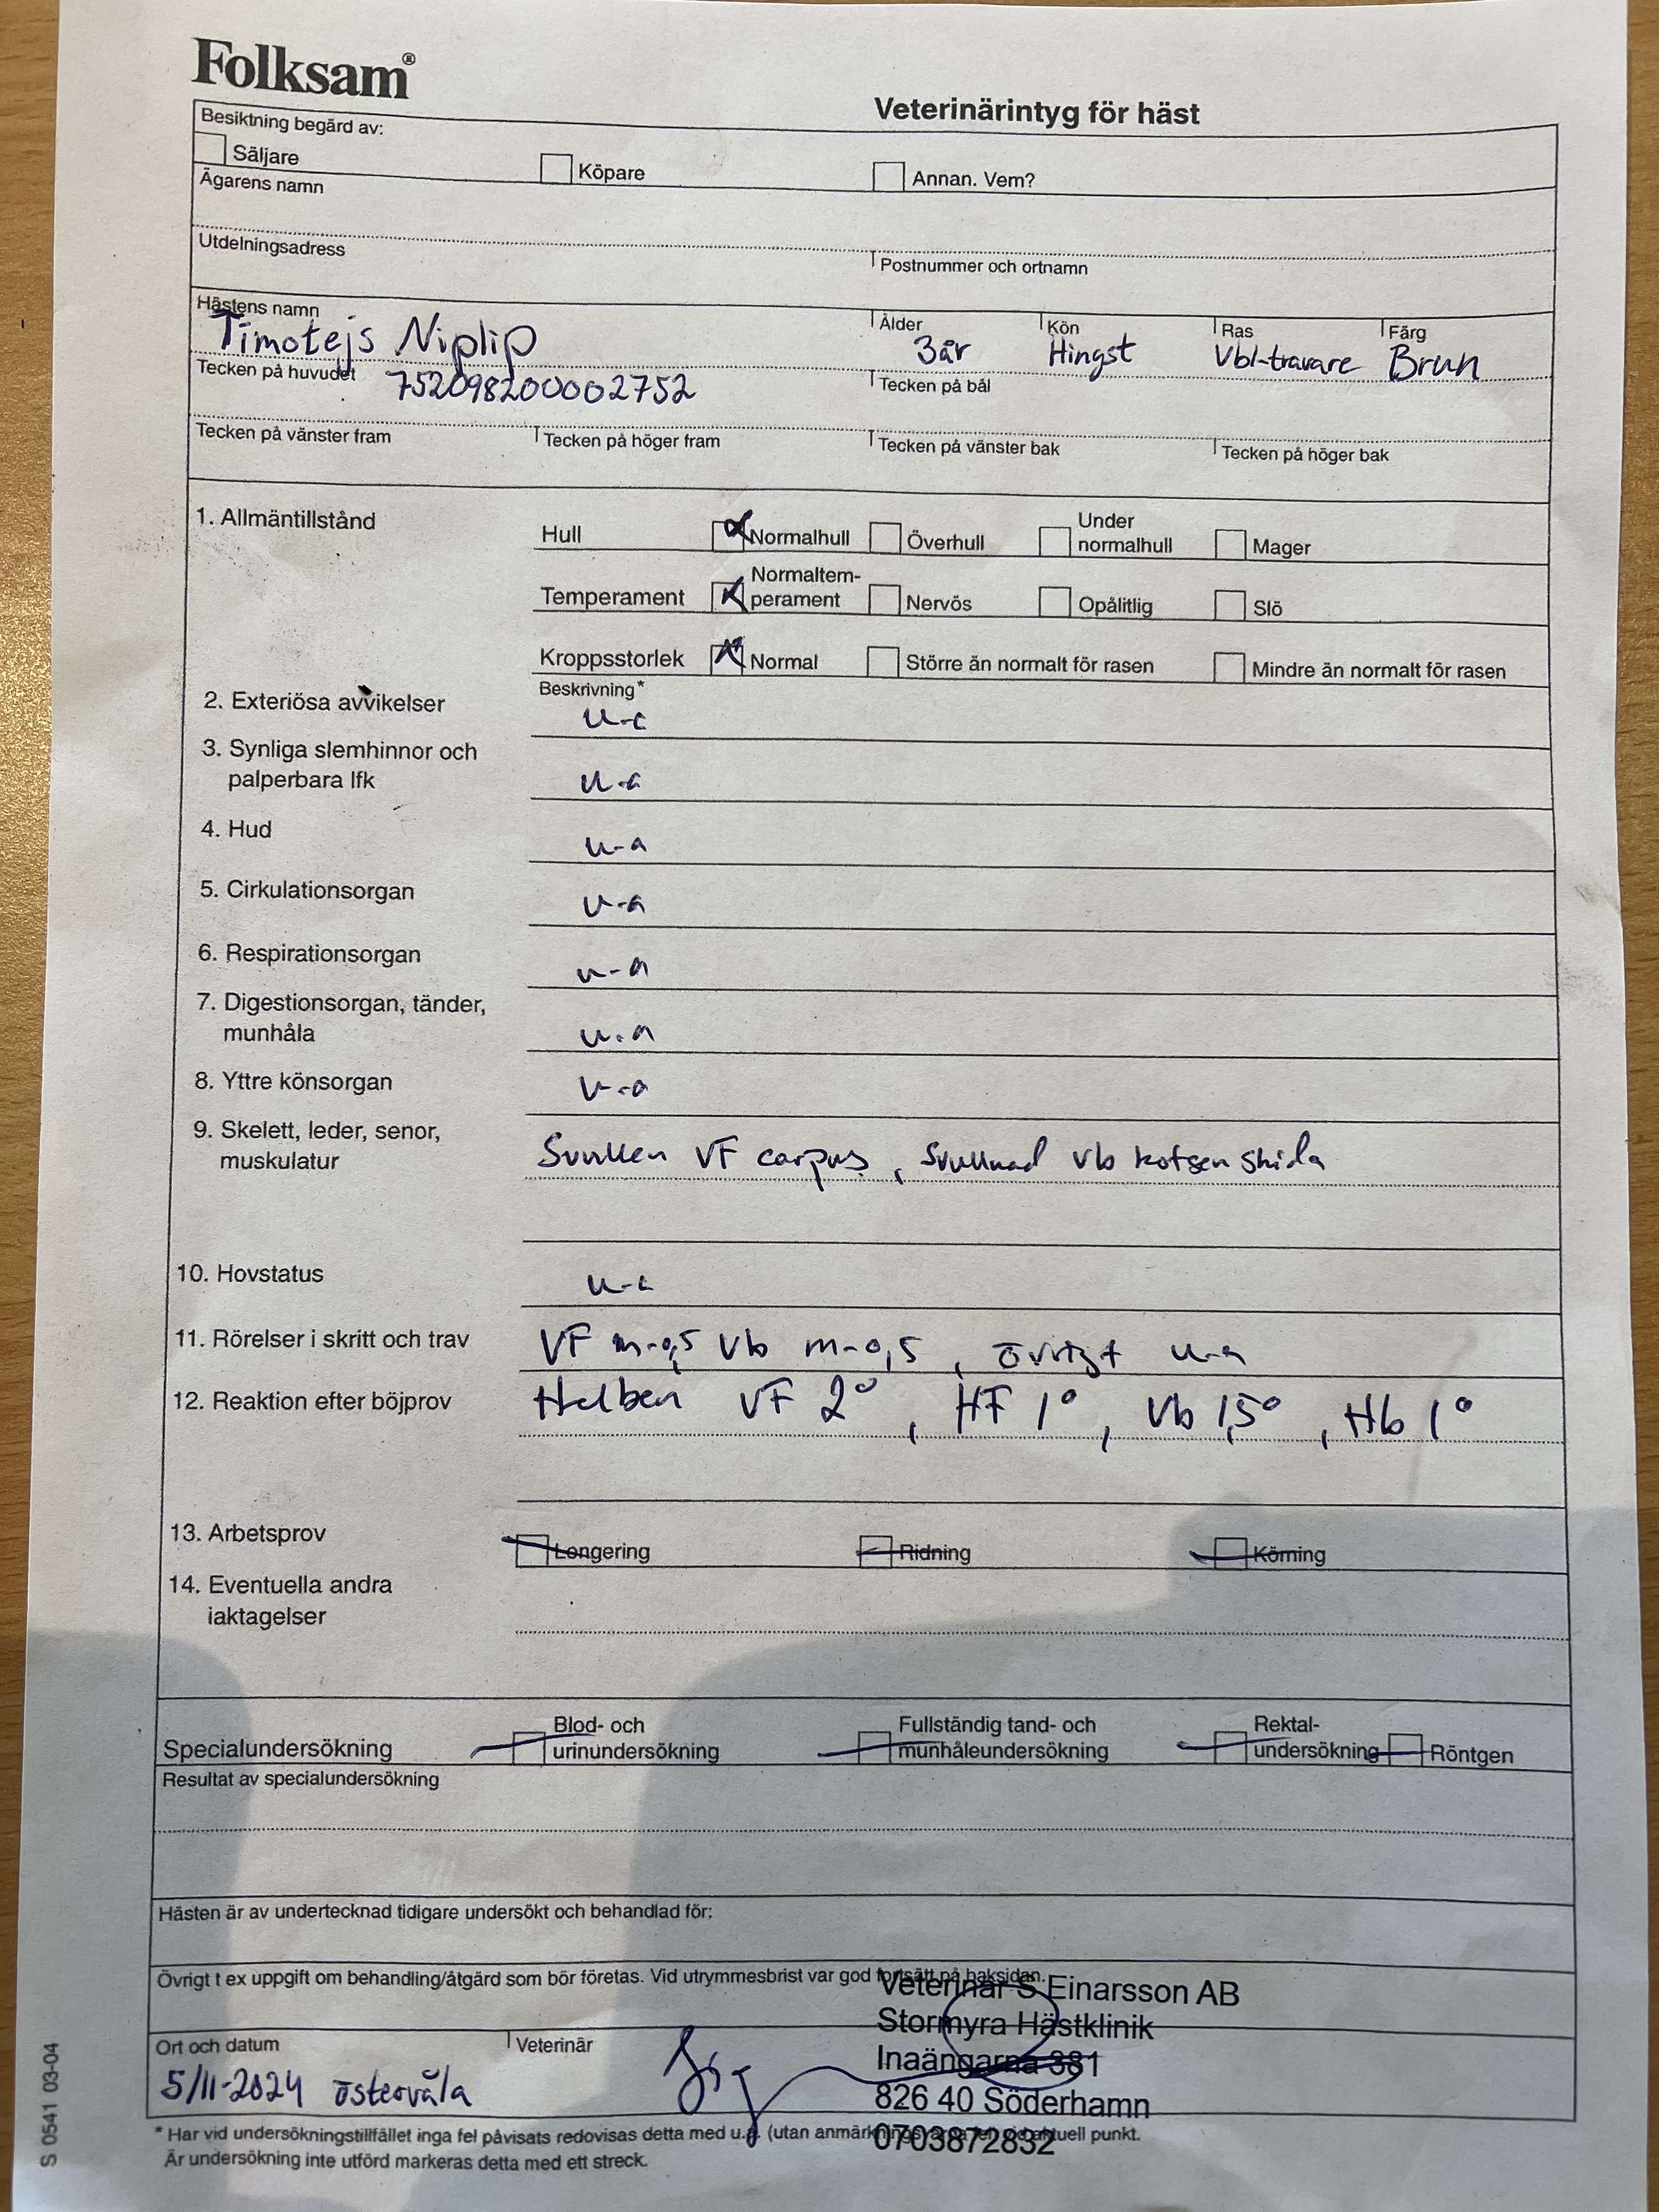 Folksam®
Veterinärintyg för häst
Besiktning begärd av:
Säljare Köpare Annan. Vem?
Ägarens namn
Utdelningsadress Postnummer och ortnamn
Hästens namn Ålder Kön Ras Färg
Timotejs Niplip 3år Hingst Vbl-travare Brun
Tecken på huvudet 752098200002752 Tecken på bål
Tecken på vänster fram Tecken på höger fram Tecken på vänster bak Tecken på höger bak
1. Allmäntillstånd
Hull Normalhull Överhull Under normalhull Mager
Temperament Normaltem-perament Nervös Opålitlig Slö
Kroppsstorlek Normal Större än normalt för rasen Mindre än normalt för rasen
Beskrivning*
2. Exteriösa avvikelser u-a
3. Synliga slemhinnor och
palperbara lfk u-a
4. Hud u-a
5. Cirkulationsorgan u-a
6. Respirationsorgan u-a
7. Digestionsorgan, tänder,
munhåla u.a
8. Yttre könsorgan u-a
9. Skelett, leder, senor,
muskulatur Svullen VF carpus, Svullnad vb kotsenskida
10. Hovstatus u-a
11. Rörelser i skritt och trav VF m-0,5 Vb m-0,5, övrigt u-a
12. Reaktion efter böjprov Helben VF 2°, HF 1°, Vb 1,5°, Hb 1°
13. Arbetsprov Longering Ridning Körning
14. Eventuella andra
iaktagelser
Specialundersökning Blod- och urinundersökning Fullständig tand- och munhåleundersökning Rektal-undersökning Röntgen
Resultat av specialundersökning
Hästen är av undertecknad tidigare undersökt och behandlad för:
Övrigt t ex uppgift om behandling/åtgärd som bör företas. Vid utrymmesbrist var god fortsätt på baksidan.
Veterinär S Einarsson AB
Stormyra Hästklinik
Inaängarna 381
826 40 Söderhamn
0703872832
Ort och datum Veterinär
5/11-2024 östervåla
* Har vid undersökningstillfället inga fel påvisats redovisas detta med u.a. (utan anmärkningsvärda fel) vid aktuell punkt.
Är undersökning inte utförd markeras detta med ett streck.
S 0541 03-04